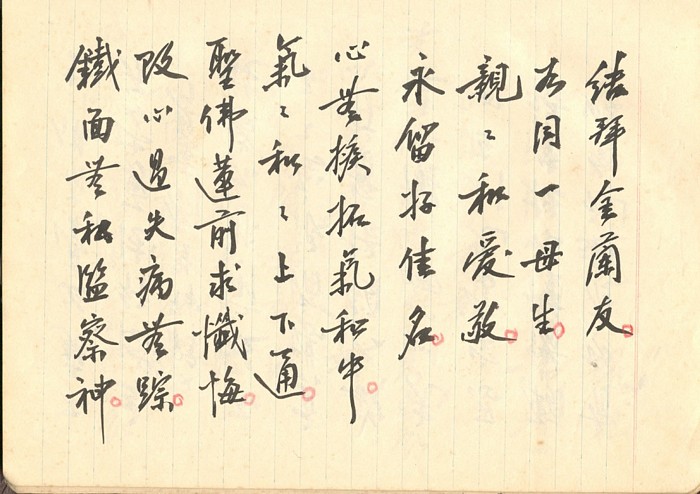 結拜金蘭友。
右同一母生。
親々和愛敬。
永留好佳名。
心無掛拓氣和中。
氣々和々上下通。
聖佛蓮前求懺悔。
改心過失病無踪。
鐵面無私監察神。